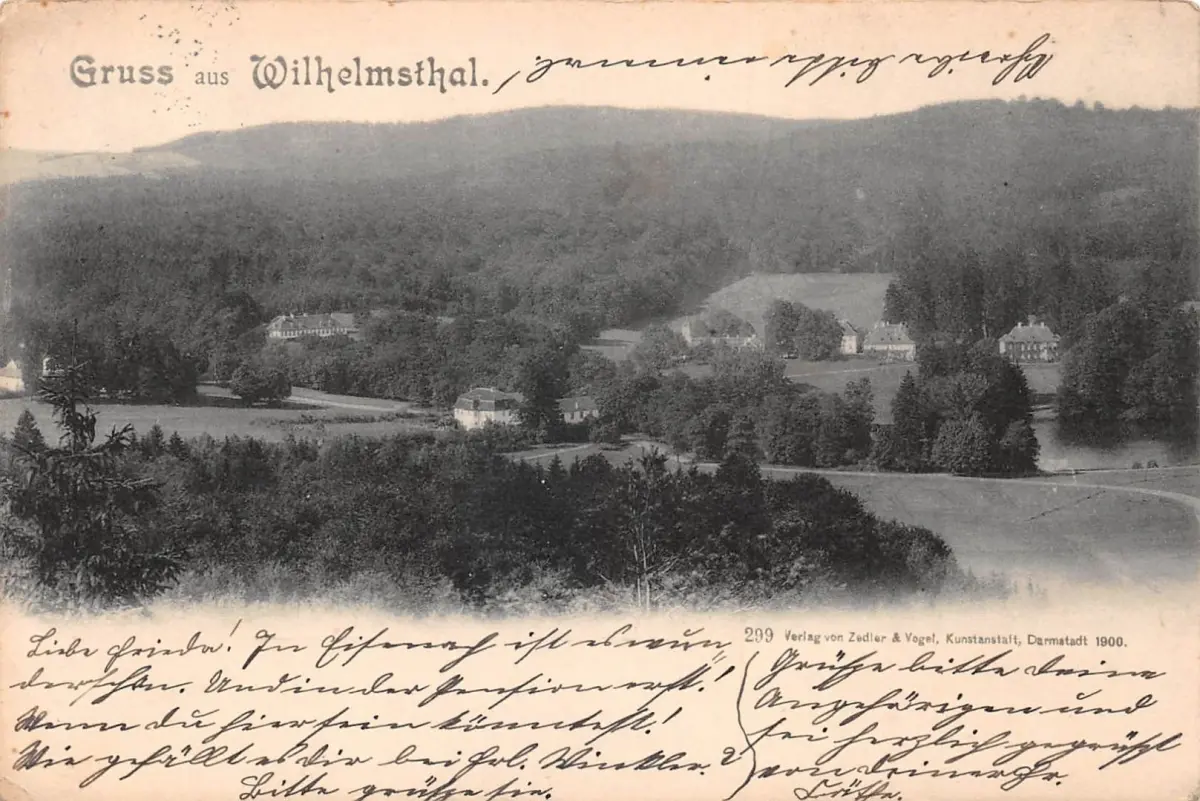 Gruss aus Wilhelmsthal.
Liebe Frieda! In Eisenach ist es wun
derschön. Und in der Pension erst!!
Wenn du hier sein könntest!
Wie gefällt es Dir bei Frl. Winkler.?
Bitte grüße sie.
299 Verlag von Zedler & Vogel, Kunstanstalt, Darmstadt 1900.
Grüße bitte Deine
Angehörigen und
sei herzlich gegrüßt
von Deiner Fr.